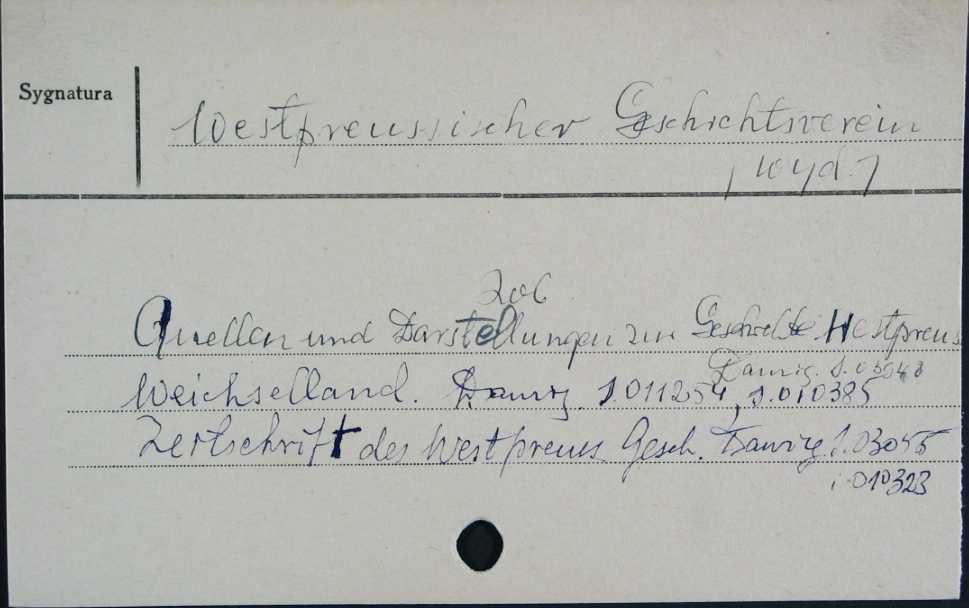 Sygnatura
Westpreussischer Geschichtsverein
/wyd./
Zob
Quellen und Darstellungen zur Geschichte Westpreus
Danzig. S.
Weichselland. Danzig. S.011254, S.010385
Zeitschrift des Westpreus Gesch. Danzig S.03055
i 010323